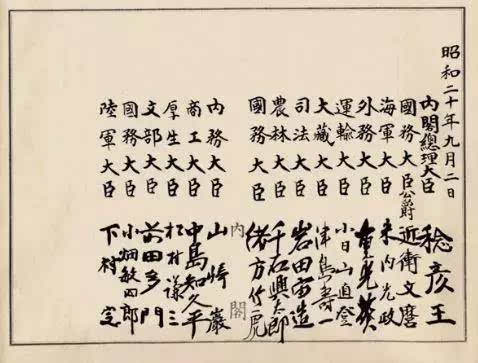 昭和二十年九月二日
內閣總理大臣 稔彥王
國務大臣公爵 近衛文麿
海軍大臣 米內光政
外務大臣 重光葵
運輸大臣 小日山直登
大藏大臣 津島壽一
司法大臣 岩田宙造
農林大臣 千石興太郎
國務大臣 緒方竹虎
內閣
內務大臣 山崎巖
商工大臣 中島知久平
厚生大臣 松村謙三
文部大臣 前田多門
國務大臣 小畑敏四郎
陸軍大臣 下村定